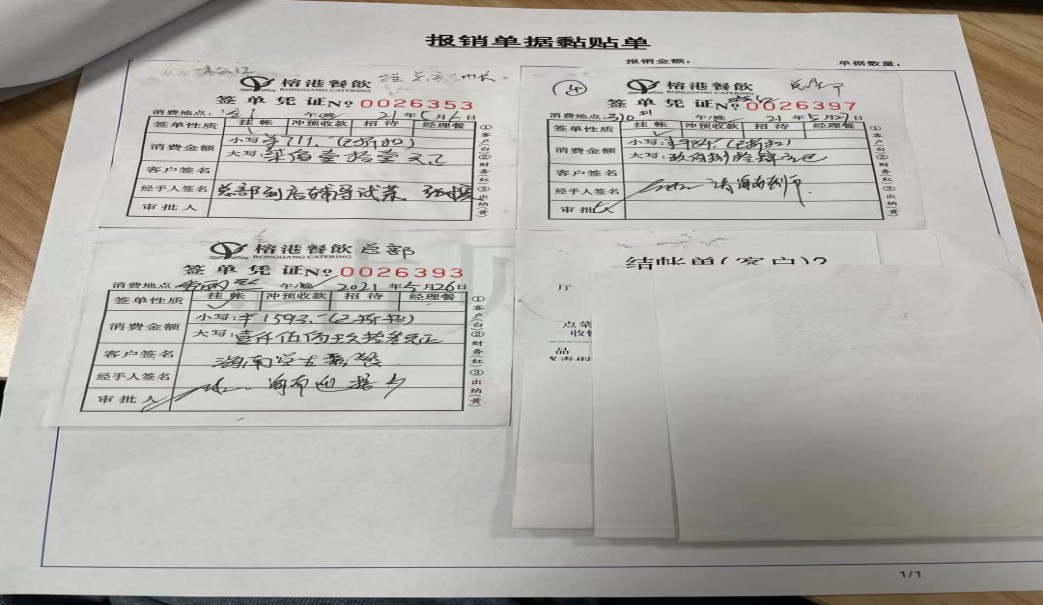 报销单据黏贴单
报销金额：
单据数量：
榕港餐飲
RONGGANG CATERING
签单凭证No 0026353
消费地点： 午/晚 21年5月6日
签单性质 挂帐 冲预收款 招待 经理餐
消费金额 小写：¥711.（已折扣）
大写：柒佰壹拾壹元正
客户签名
经手人签名 总部到店辅导试菜
审批人
①客户(白)②财务(红)③出纳(黄)
④
榕港餐飲
RONGGANG CATERING
签单凭证No 0026397
消费地点： 午/晚 21年5月27日
签单性质 挂帐 冲预收款 招待 经理餐
消费金额 小写：¥984.（已折扣）
大写：玖佰捌拾肆元
客户签名
经手人签名
审批人
①客户(白)②财务(红)③出纳(黄)
榕港餐飲 总部
RONGGANG CATERING
签单凭证No 0026393
消费地点： 午/晚 2021年5月26日
签单性质 挂帐 冲预收款 招待 经理餐
消费金额 小写：¥1593.-（已折扣）
大写：壹仟伍佰玖拾叁元正
客户签名 海南学生聚餐
经手人签名
审批人
①客户(白)②财务(红)③出纳(黄)
结帐单(客户)2
厅
点菜
收银
品
1/1